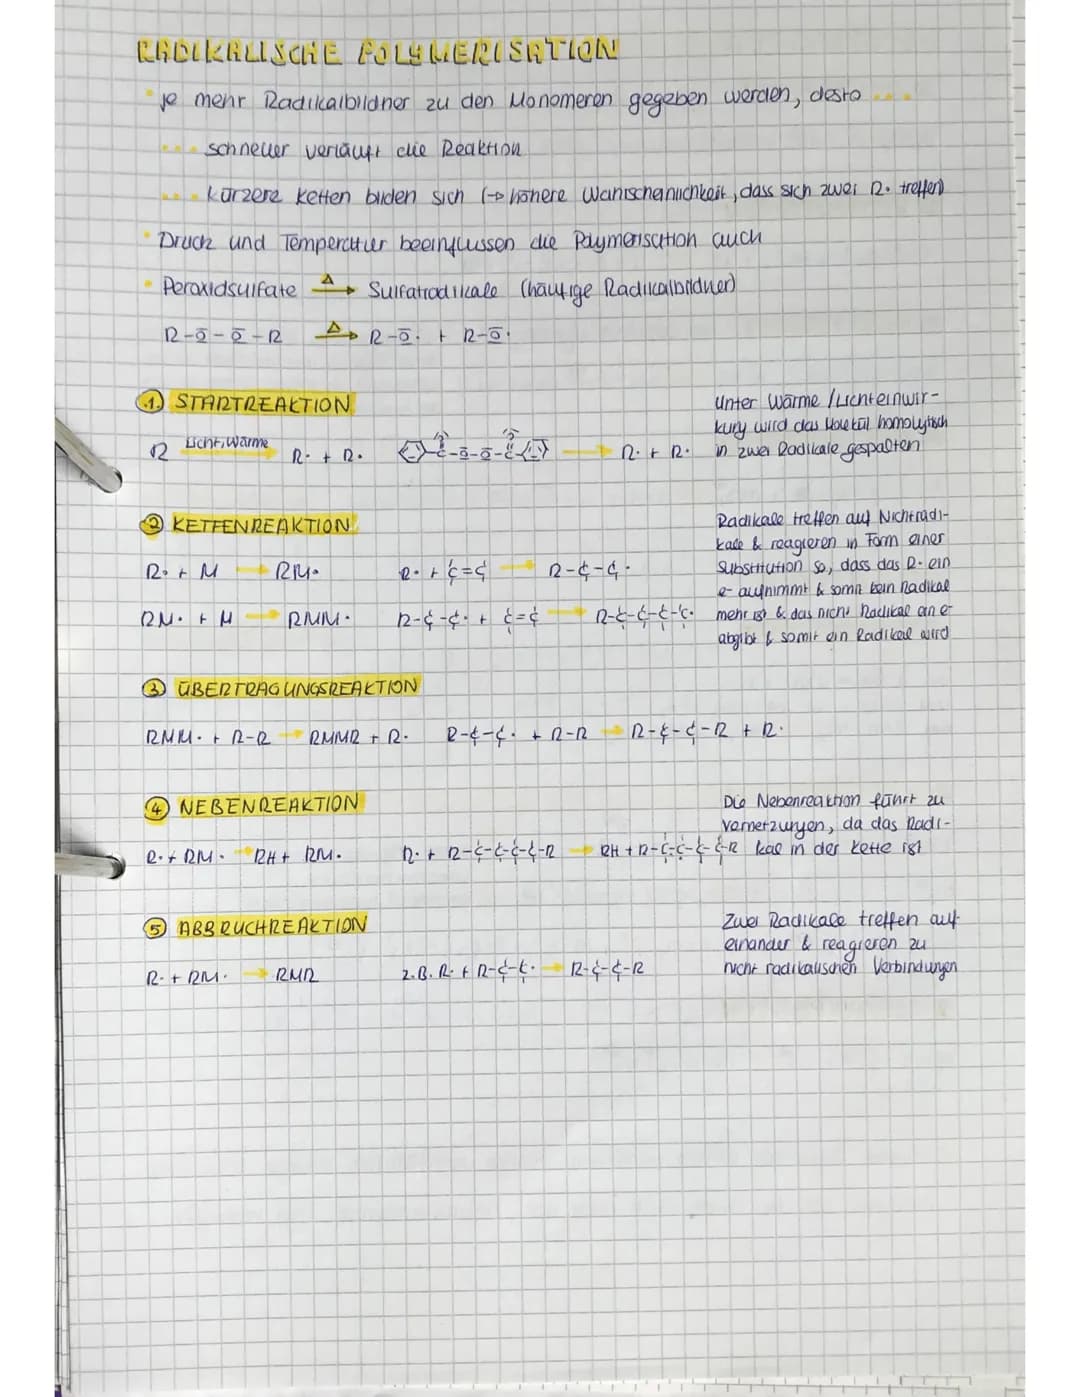 RADIKALISCHE POLYMERISATION
• je mehr Radikalbildner zu den Monomeren gegeben werden, desto ...
... schneller verläuft die Reaktion
... kürzere Ketten bilden sich (→ höhere Wahrscheinlichkeit, dass sich zwei R• treffen)
• Druck und Temperatur beeinflussen die Polymerisation auch
• Peroxidsulfate Δ→ Sulfatradikale (häufige Radikalbildner)
R-O-O-R Δ→ R-O• + R-O•
1. STARTREAKTION
R Licht, Wärme → R• + R•
→ R• + R•
Unter Wärme / Lichteinwir-
kung wird das Molekül homolytisch
in zwei Radikale gespalten
2 KETTENREAKTION
R• + M → RM•
R• + C=C → R-C-C•
RM• + M → RMM•
R-C-C• + C=C → R-C-C-C-C•
Radikale treffen auf Nichtradi-
kale & reagieren in Form einer
Substitution so, dass das R• ein
e- aufnimmt & somit kein Radikal
mehr ist & das nicht Radikal ein e-
abgibt & somit ein Radikal wird
3 ÜBERTRAGUNGSREAKTION
RMM• + R-R → RMMR + R•
R-C-C• + R-R → R-C-C-R + R•
4 NEBENREAKTION
R• + RM• → RH + RM•
R• + R-C-C-C-C-R → RH + R-C-C-C-C-R
Die Nebenreaktion führt zu
Vernetzungen, da das Radi-
kal in der Kette ist
5 ABBRUCHREAKTION
R• + RM• → RMR
z.B. R• + R-C-C• → R-C-C-R
Zwei Radikale treffen auf-
einander & reagieren zu
nicht radikalischen Verbindungen